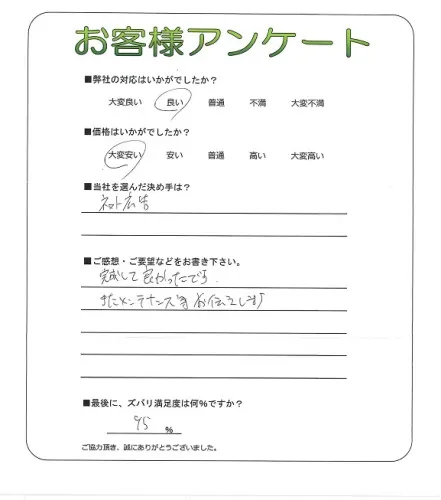 お客様アンケート
■弊社の対応はいかがでしたか?
大変良い 良い 普通 不満 大変不満
■価格はいかがでしたか?
大変安い 安い 普通 高い 大変高い
■当社を選んだ決め手は?
ネット広告
■ご感想・ご要望などをお書き下さい。
完成して良かったです
またメンテナンス等お伝えします
■最後に、ズバリ満足度は何%ですか?
95 %
ご協力頂き、誠にありがとうございました。